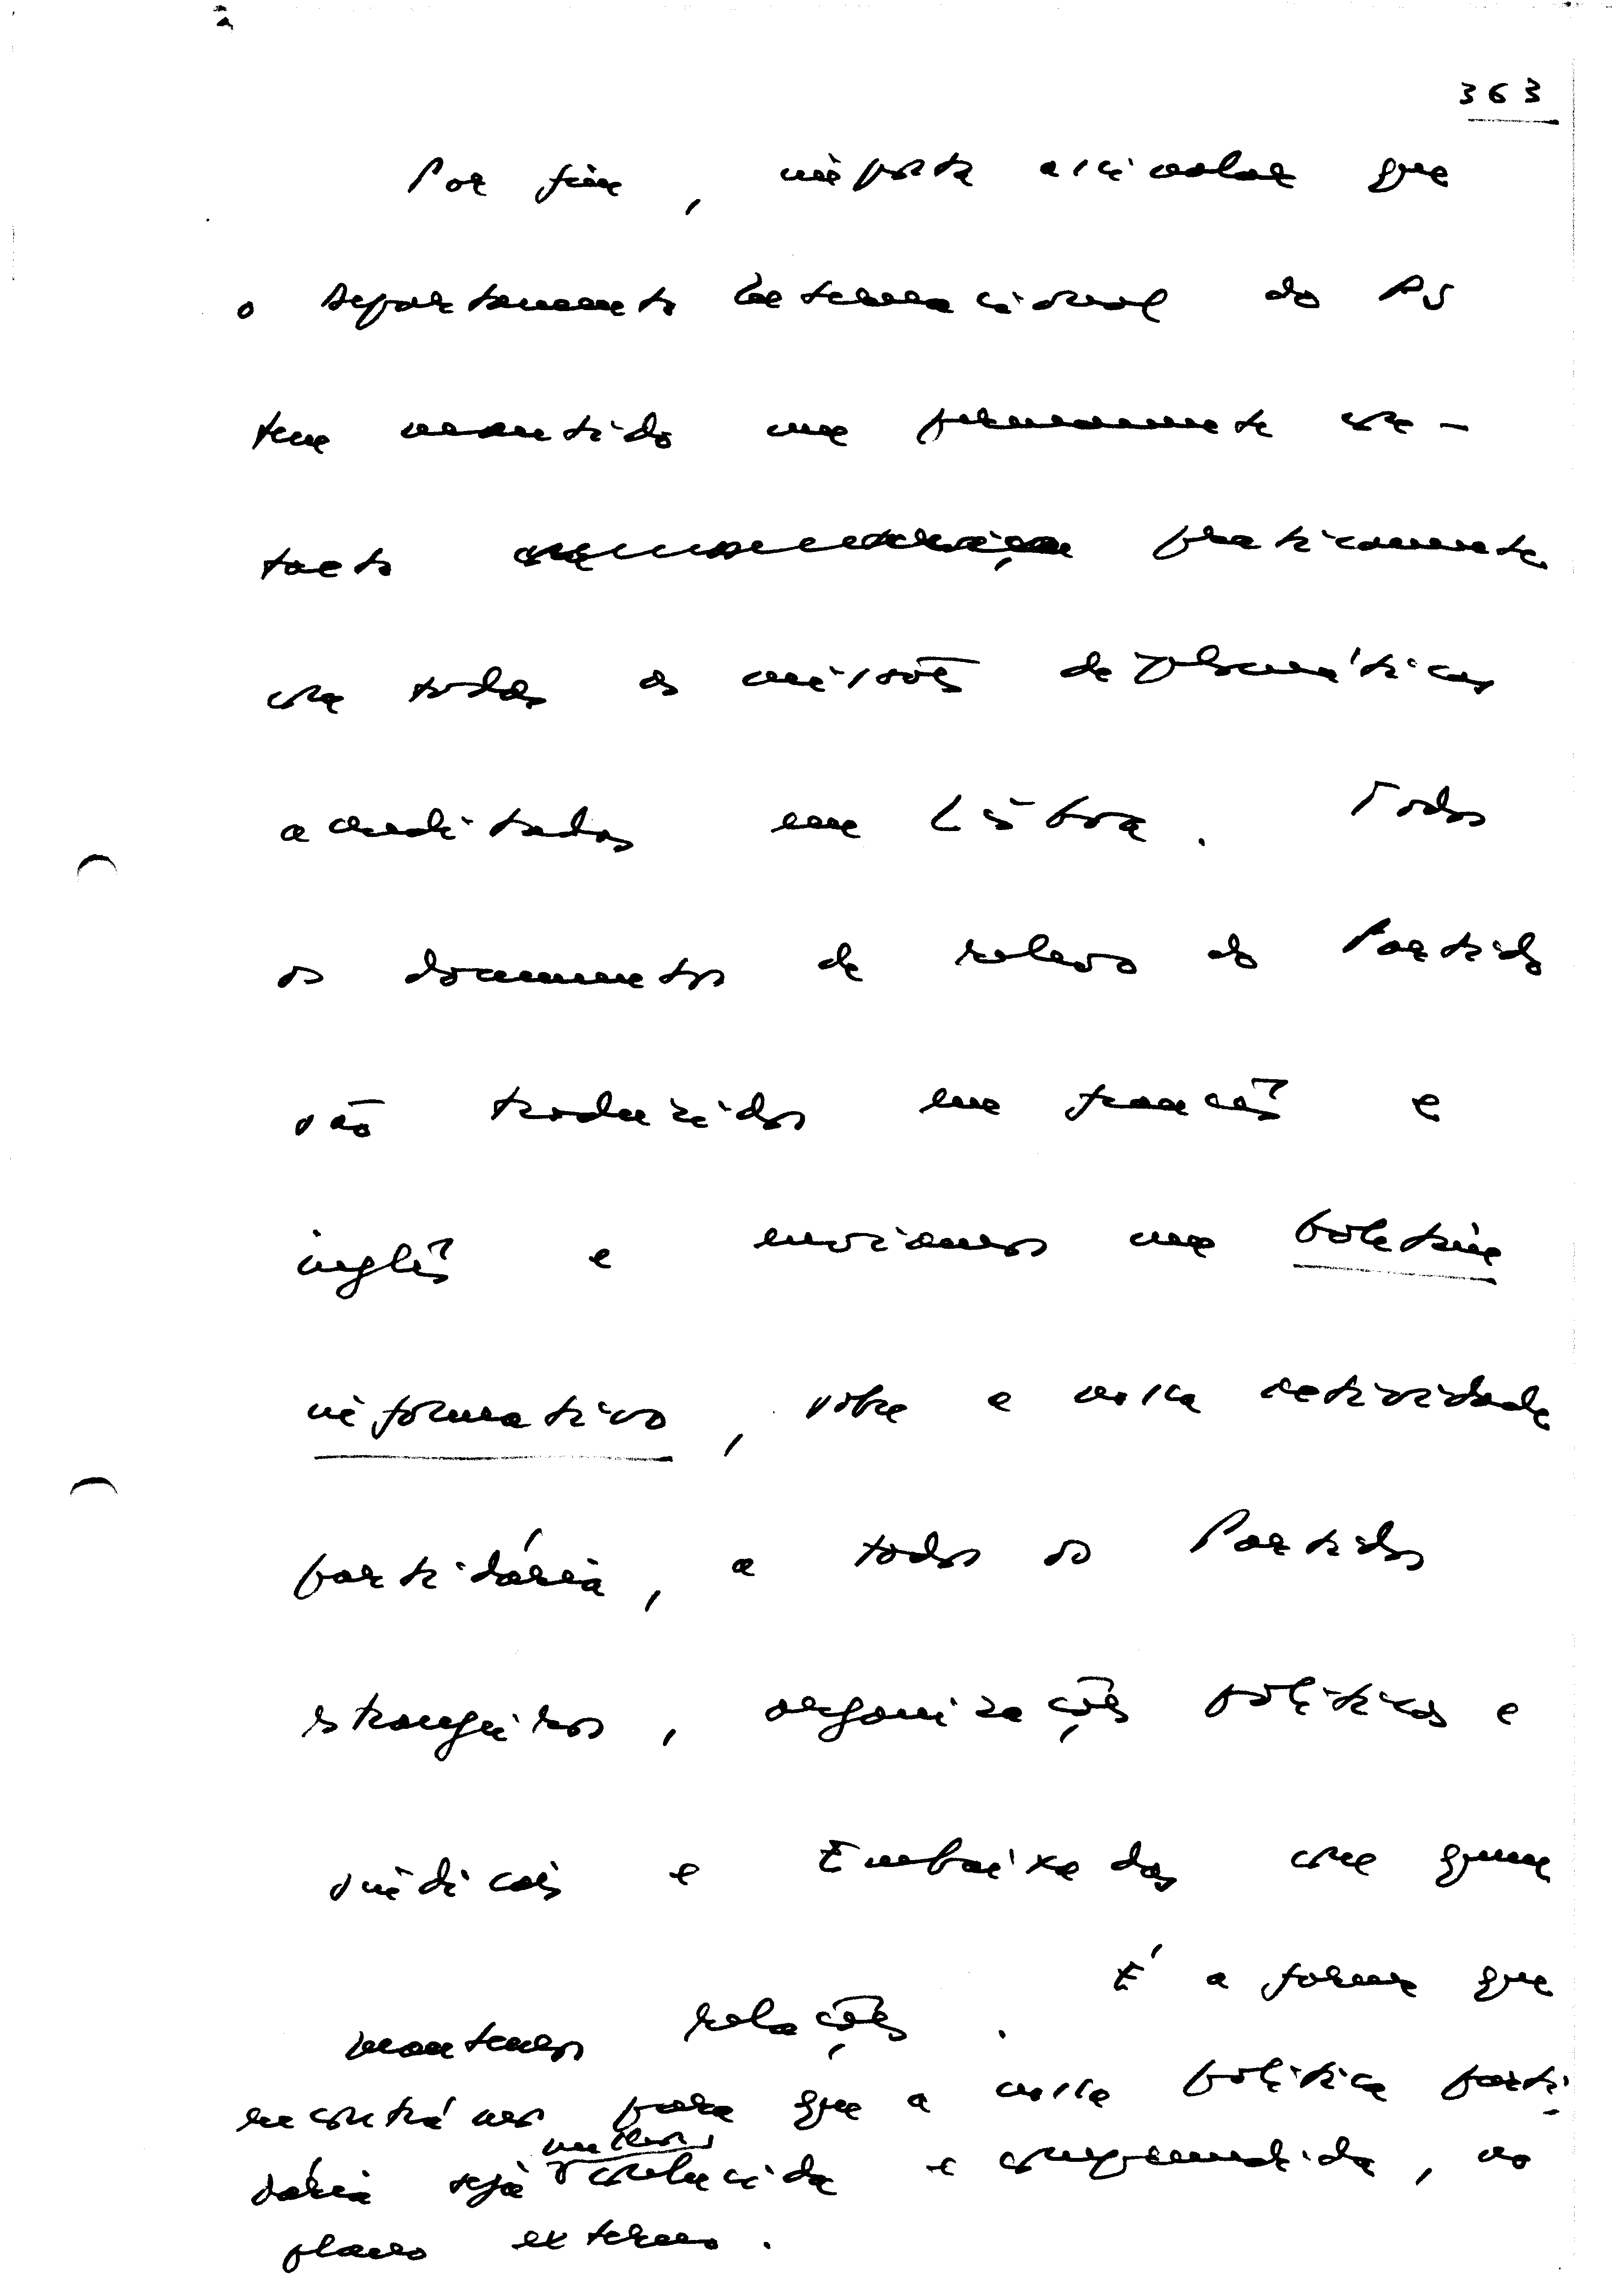 363
Por fim, importa assinalar que
o Departamento Internacional do PS
tem mantido um permanente con-
tacto praticamente
com todas as missões diplomáticas
acreditadas em Lisboa. Todos
os documentos de relevo do Partido
são traduzidos em francês e
inglês e enviamos um boletim
informativo, sobre a nossa actividade
partidária, a todos os Partidos
estrangeiros, organizações políticas e
sindicais e Embaixadas com quem
mantemos relações. É a forma que
encontrámos para que a nossa política parti-
dária seja melhor conhecida e compreendida, no
plano externo.